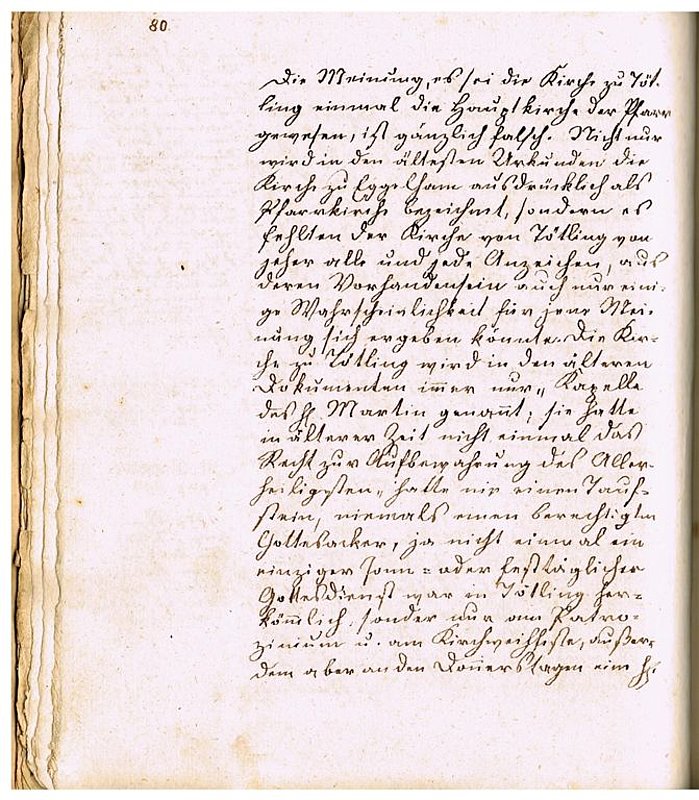 80.
Die Meinung, es sei die Kirche zu Töt-
ling einmal die Hauptkirche der Pfarr
gewesen, ist gänzlich falsch. Nicht nur
wird in den ältesten Urkunden die
Kirche zu Eggelham ausdrücklich als
Pfarrkirche bezeichnet, sondern es
fehlten der Kirche von Tötling von
jeher alle und jede Anzeichen, aus
deren Vorhandensein auch nur eini-
ge Wahrscheinlichkeit für jene Mei-
nung sich ergeben könnte. Die Kir-
che zu Tötling wird in den älteren
Dokumenten immer nur „ Kapelle
des hl. Martin genannt; sie hatte
in älterer Zeit nicht einmal das
Recht zur Aufbewahrung des Aller-
heiligesten, hatte nie einen Tauf-
stein, niemals einen berechtigten
Gottesacker, ja nicht einmal ein
einziger Sonn= oder festtäglicher
Gottesdienst war in Tötling her=
kömmlich, sonder nur am Patro-
zinium u. am Kirchweihfeste, außer-
dem aber an den Donnerstagen eine hl.